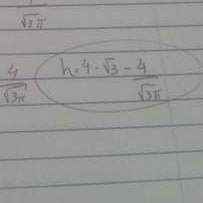 √3π
4/√3π h = 4 · √3 - 4/√3π